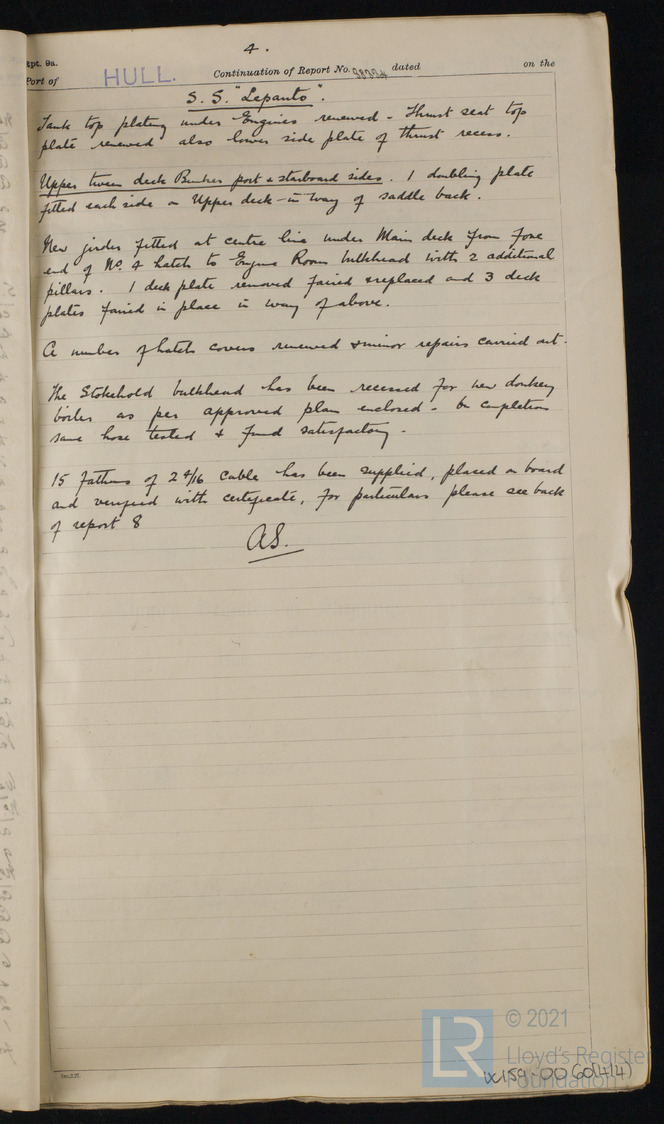 4.
Rpt. 9a.
Port of HULL. Continuation of Report No. dated on the
S. S. "Lepanto".
Tank top plating under Engines renewed - Thrust seat top
plate renewed also lower side plate of thrust recess.
Upper tween deck Bunker port & starboard sides. 1 doubling plate
fitted each side on Upper deck in way of saddle back.
New girder fitted at centre line under Main deck from fore
end of No. 4 hatch to Engine Room bulkhead with 2 additional
pillars. 1 deck plate removed faired & replaced and 3 deck
plates faired in place in way of above.
A number of hatch covers renewed & minor repairs carried out.
The Stokehold bulkhead has been recessed for new donkey
boiler as per approved plan enclosed - On completion
same hose tested & found satisfactory.
15 fathoms of 2 4/16 Cable has been supplied, placed on board
and verified with certificate, for particulars please see back
of report 8
AS.
LR © 2021
Lloyd's Register
Foundation